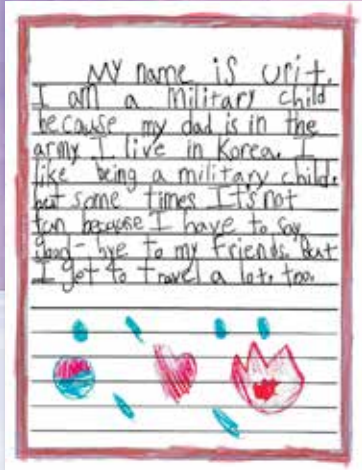 My name is Urit.
I am a military child
because my dad is in the
army I live in Korea. I
like being a military child.
but some times It's not
fun because I have to say
good-bye to my friends. But
I get to travel a lot, too.